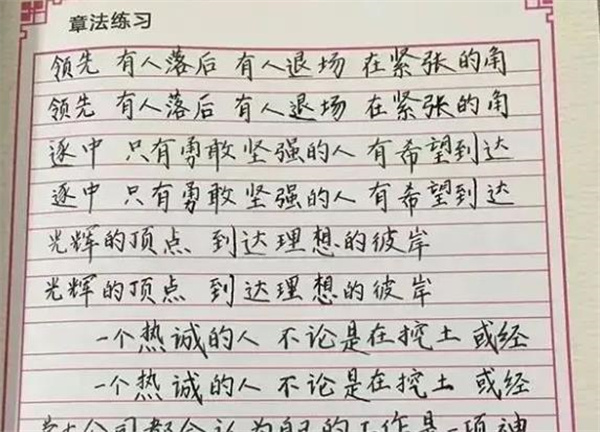 章法练习
领先 有人落后 有人退场 在紧张的角
领先 有人落后 有人退场 在紧张的角
逐中 只有勇敢坚强的人 有希望到达
逐中 只有勇敢坚强的人 有希望到达
光辉的顶点 到达理想的彼岸
光辉的顶点 到达理想的彼岸
一个热诚的人 不论是在挖土 或经
一个热诚的人 不论是在挖土 或经
公司都会认为自己的工作是一项神